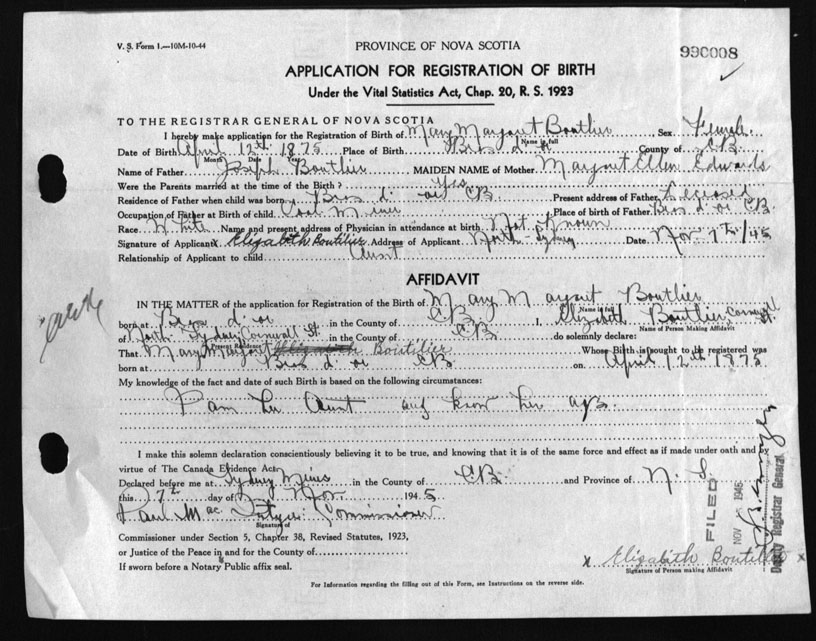 V. S. Form 1.—10M-10-44
PROVINCE OF NOVA SCOTIA
990008
APPLICATION FOR REGISTRATION OF BIRTH
Under the Vital Statistics Act, Chap. 20, R. S. 1923
TO THE REGISTRAR GENERAL OF NOVA SCOTIA
I hereby make application for the Registration of Birth of Mary Margaret Boutlier Sex Female
Name in full
Date of Birth April 12th 1875 Place of Birth Bras d'or County of CB
Month Date Year
Name of Father Joseph Boutlier MAIDEN NAME of Mother Margaret Ellen Edwards
Were the Parents married at the time of the Birth? Yes
Residence of Father when child was born Bras d'or CB Present address of Father Deceased
Occupation of Father at Birth of child Coal Miner Place of birth of Father Bras d'or CB
Race White Name and present address of Physician in attendance at birth Not Known
Signature of Applicant x Elizabeth Boutilier Address of Applicant North Sydney Date Nov 7th/45
Relationship of Applicant to child Aunt
AFFIDAVIT
IN THE MATTER of the application for Registration of the Birth of Mary Margaret Boutlier
Name in full
born at Bras d'or in the County of CB I, Elizabeth Boutlier
Name of Person Making Affidavit
of North Sydney Cornwall St in the County of CB do solemnly declare:
Present Residence
That Mary Margaret Boutilier Whose Birth is sought to be registered was
born at Bras d'or CB on April 12th 1875
My knowledge of the fact and date of such Birth is based on the following circumstances:
I am her Aunt and know her age.
I make this solemn declaration conscientiously believing it to be true, and knowing that it is of the same force and effect as if made under oath and by
virtue of The Canada Evidence Act.
Declared before me at Sydney Mines in the County of CB and Province of N. S.
this 7th day of Nov 1945
Mac Intyre Commissioner
Signature of
Commissioner under Section 5, Chapter 38, Revised Statutes, 1923,
or Justice of the Peace in and for the County of
If sworn before a Notary Public affix seal.
x Elizabeth Boutilier x
Signature of Person making Affidavit
FILED
NOV 1945
Deputy Registrar General
For Information regarding the filling out of this Form, see Instructions on the reverse side.